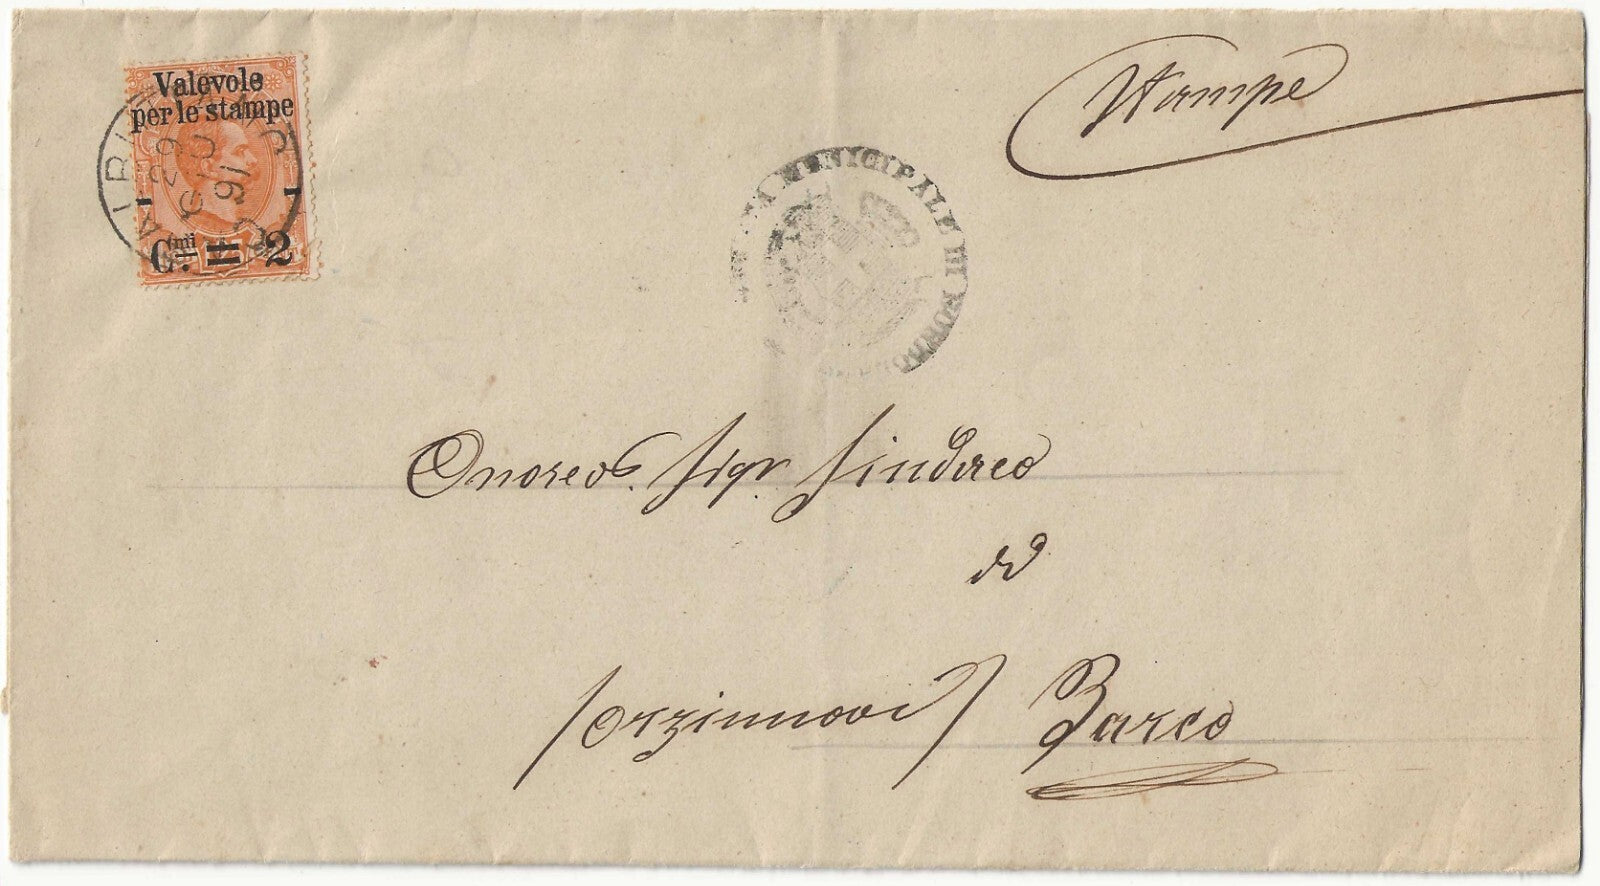 Valevole
per le stampe
Cmi 2
29
GIU
91
Stampe
MUNICIPALE DI
Onorevo. Sigr. Sindaco
di
(Orzinuovi) Barco